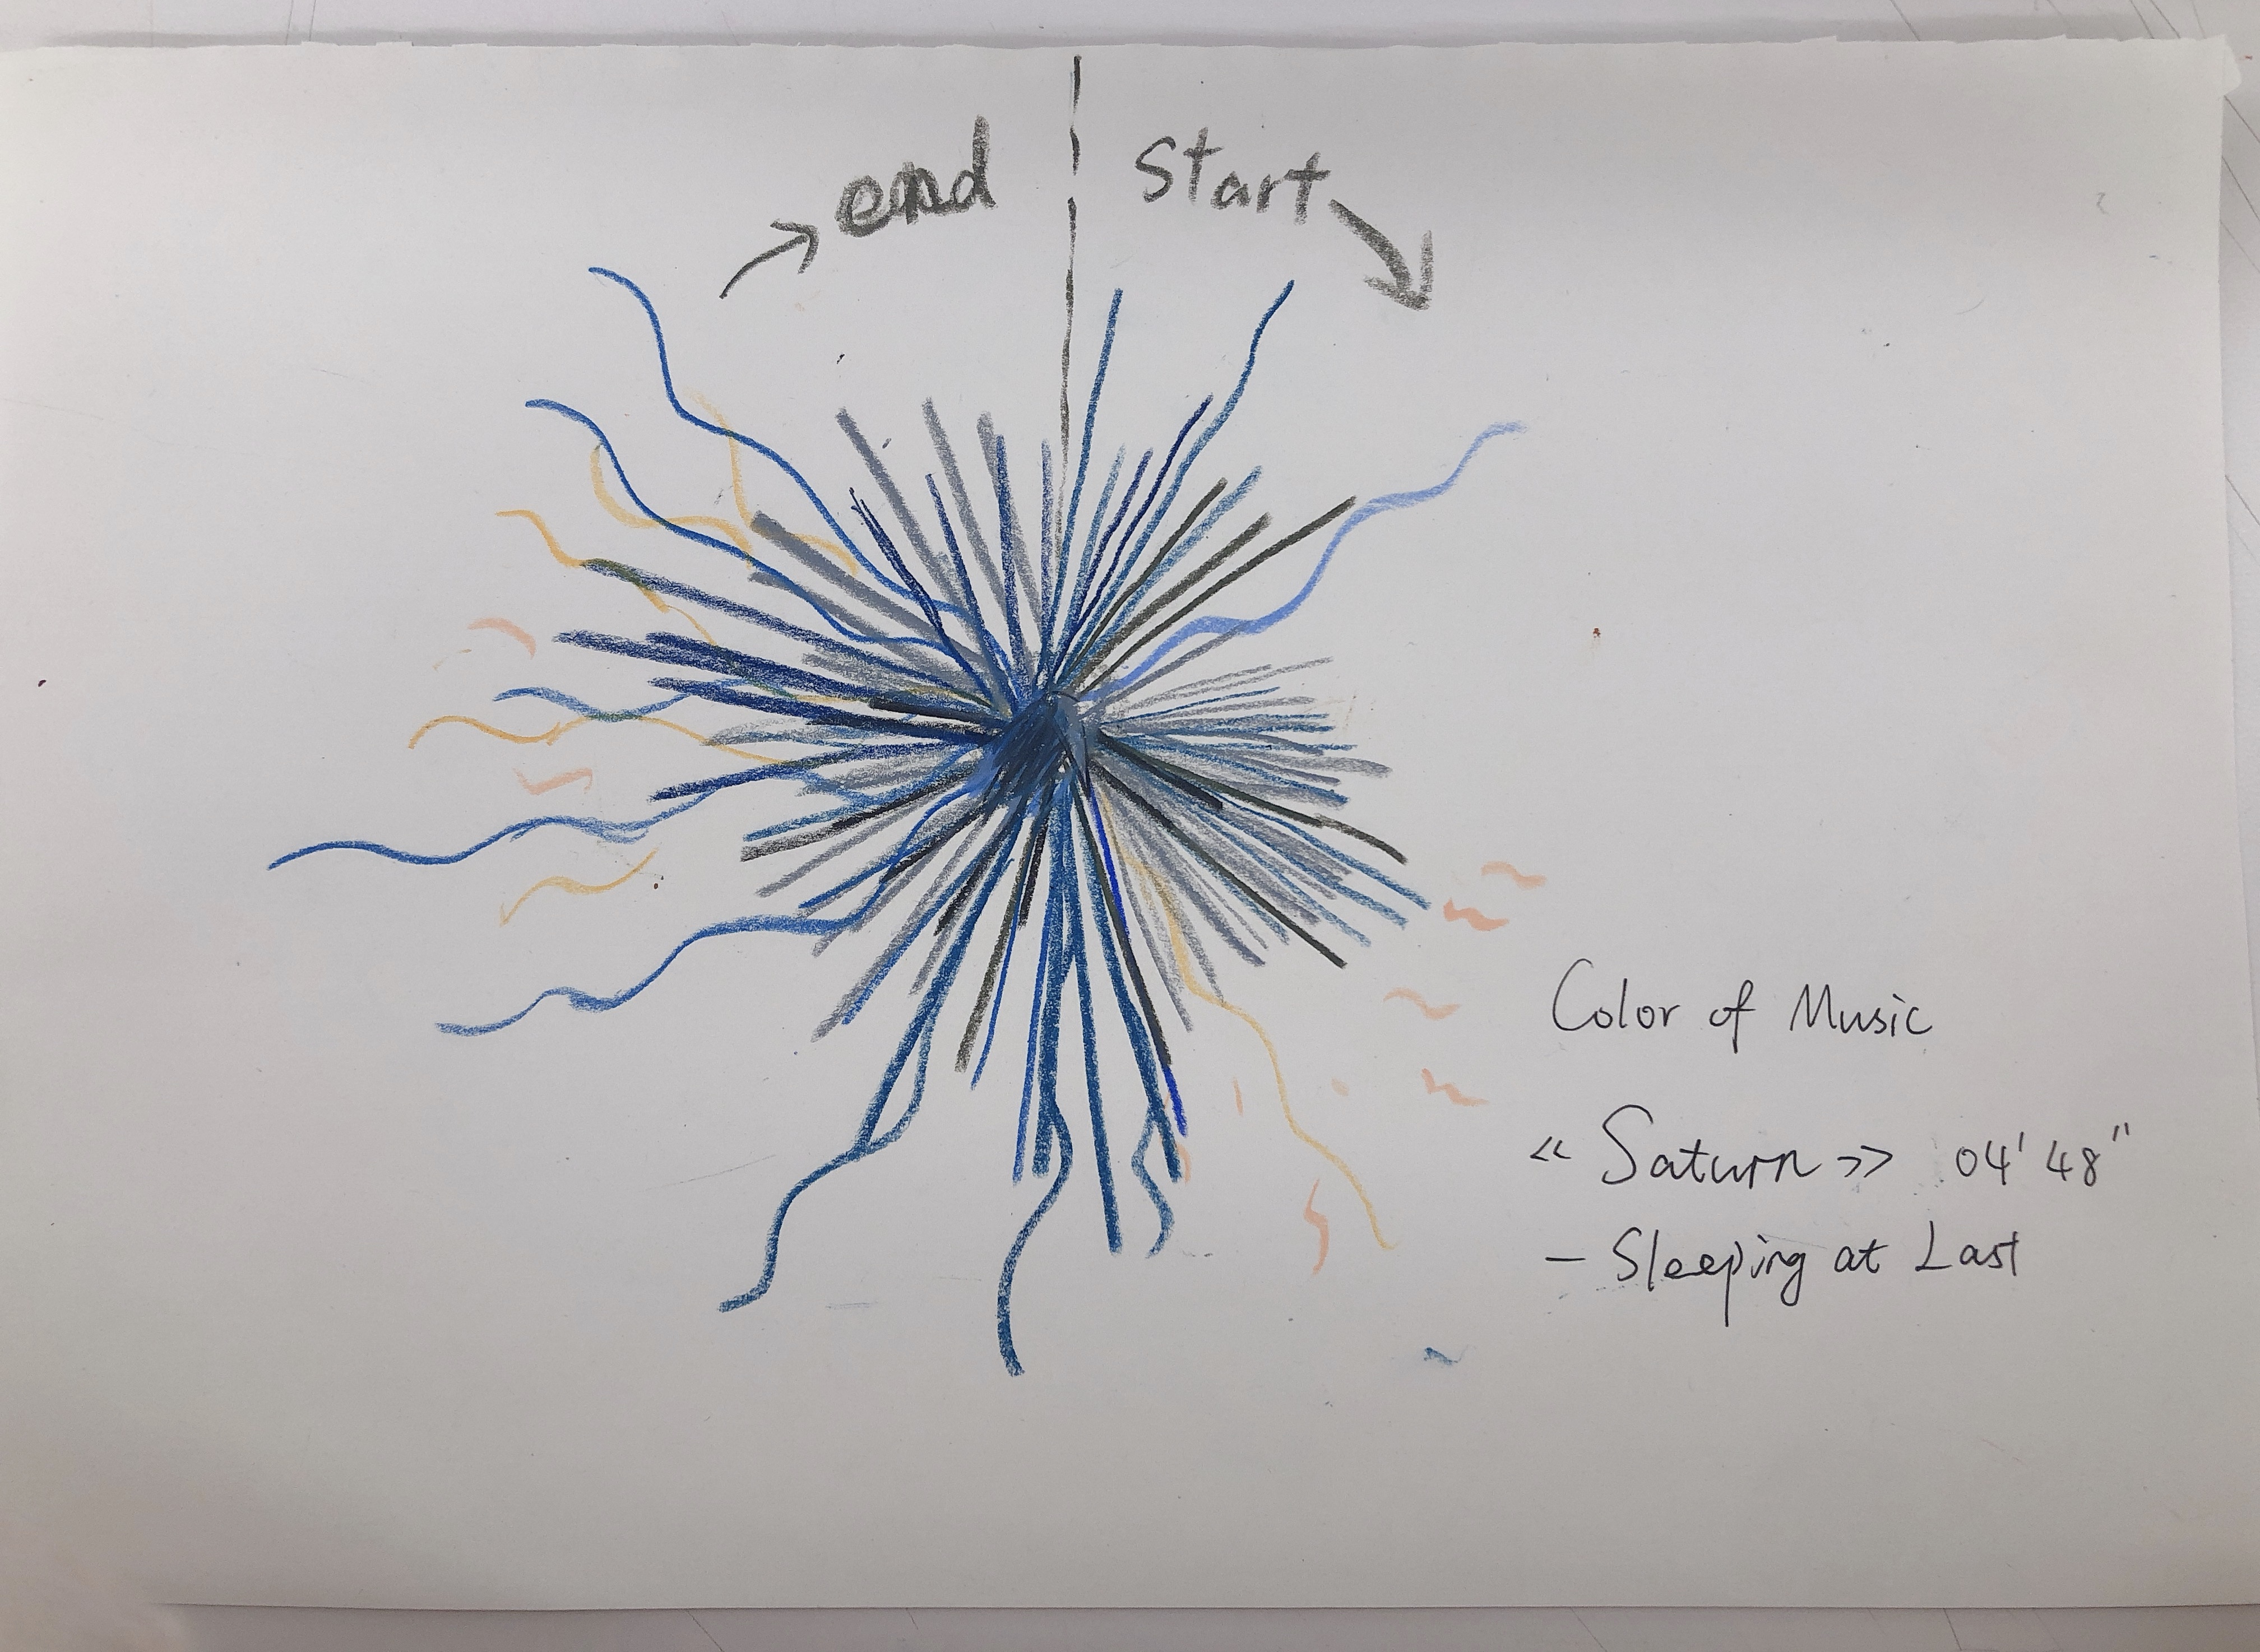 end start
Color of Music
« Saturn » 04' 48"
— Sleeping at Last